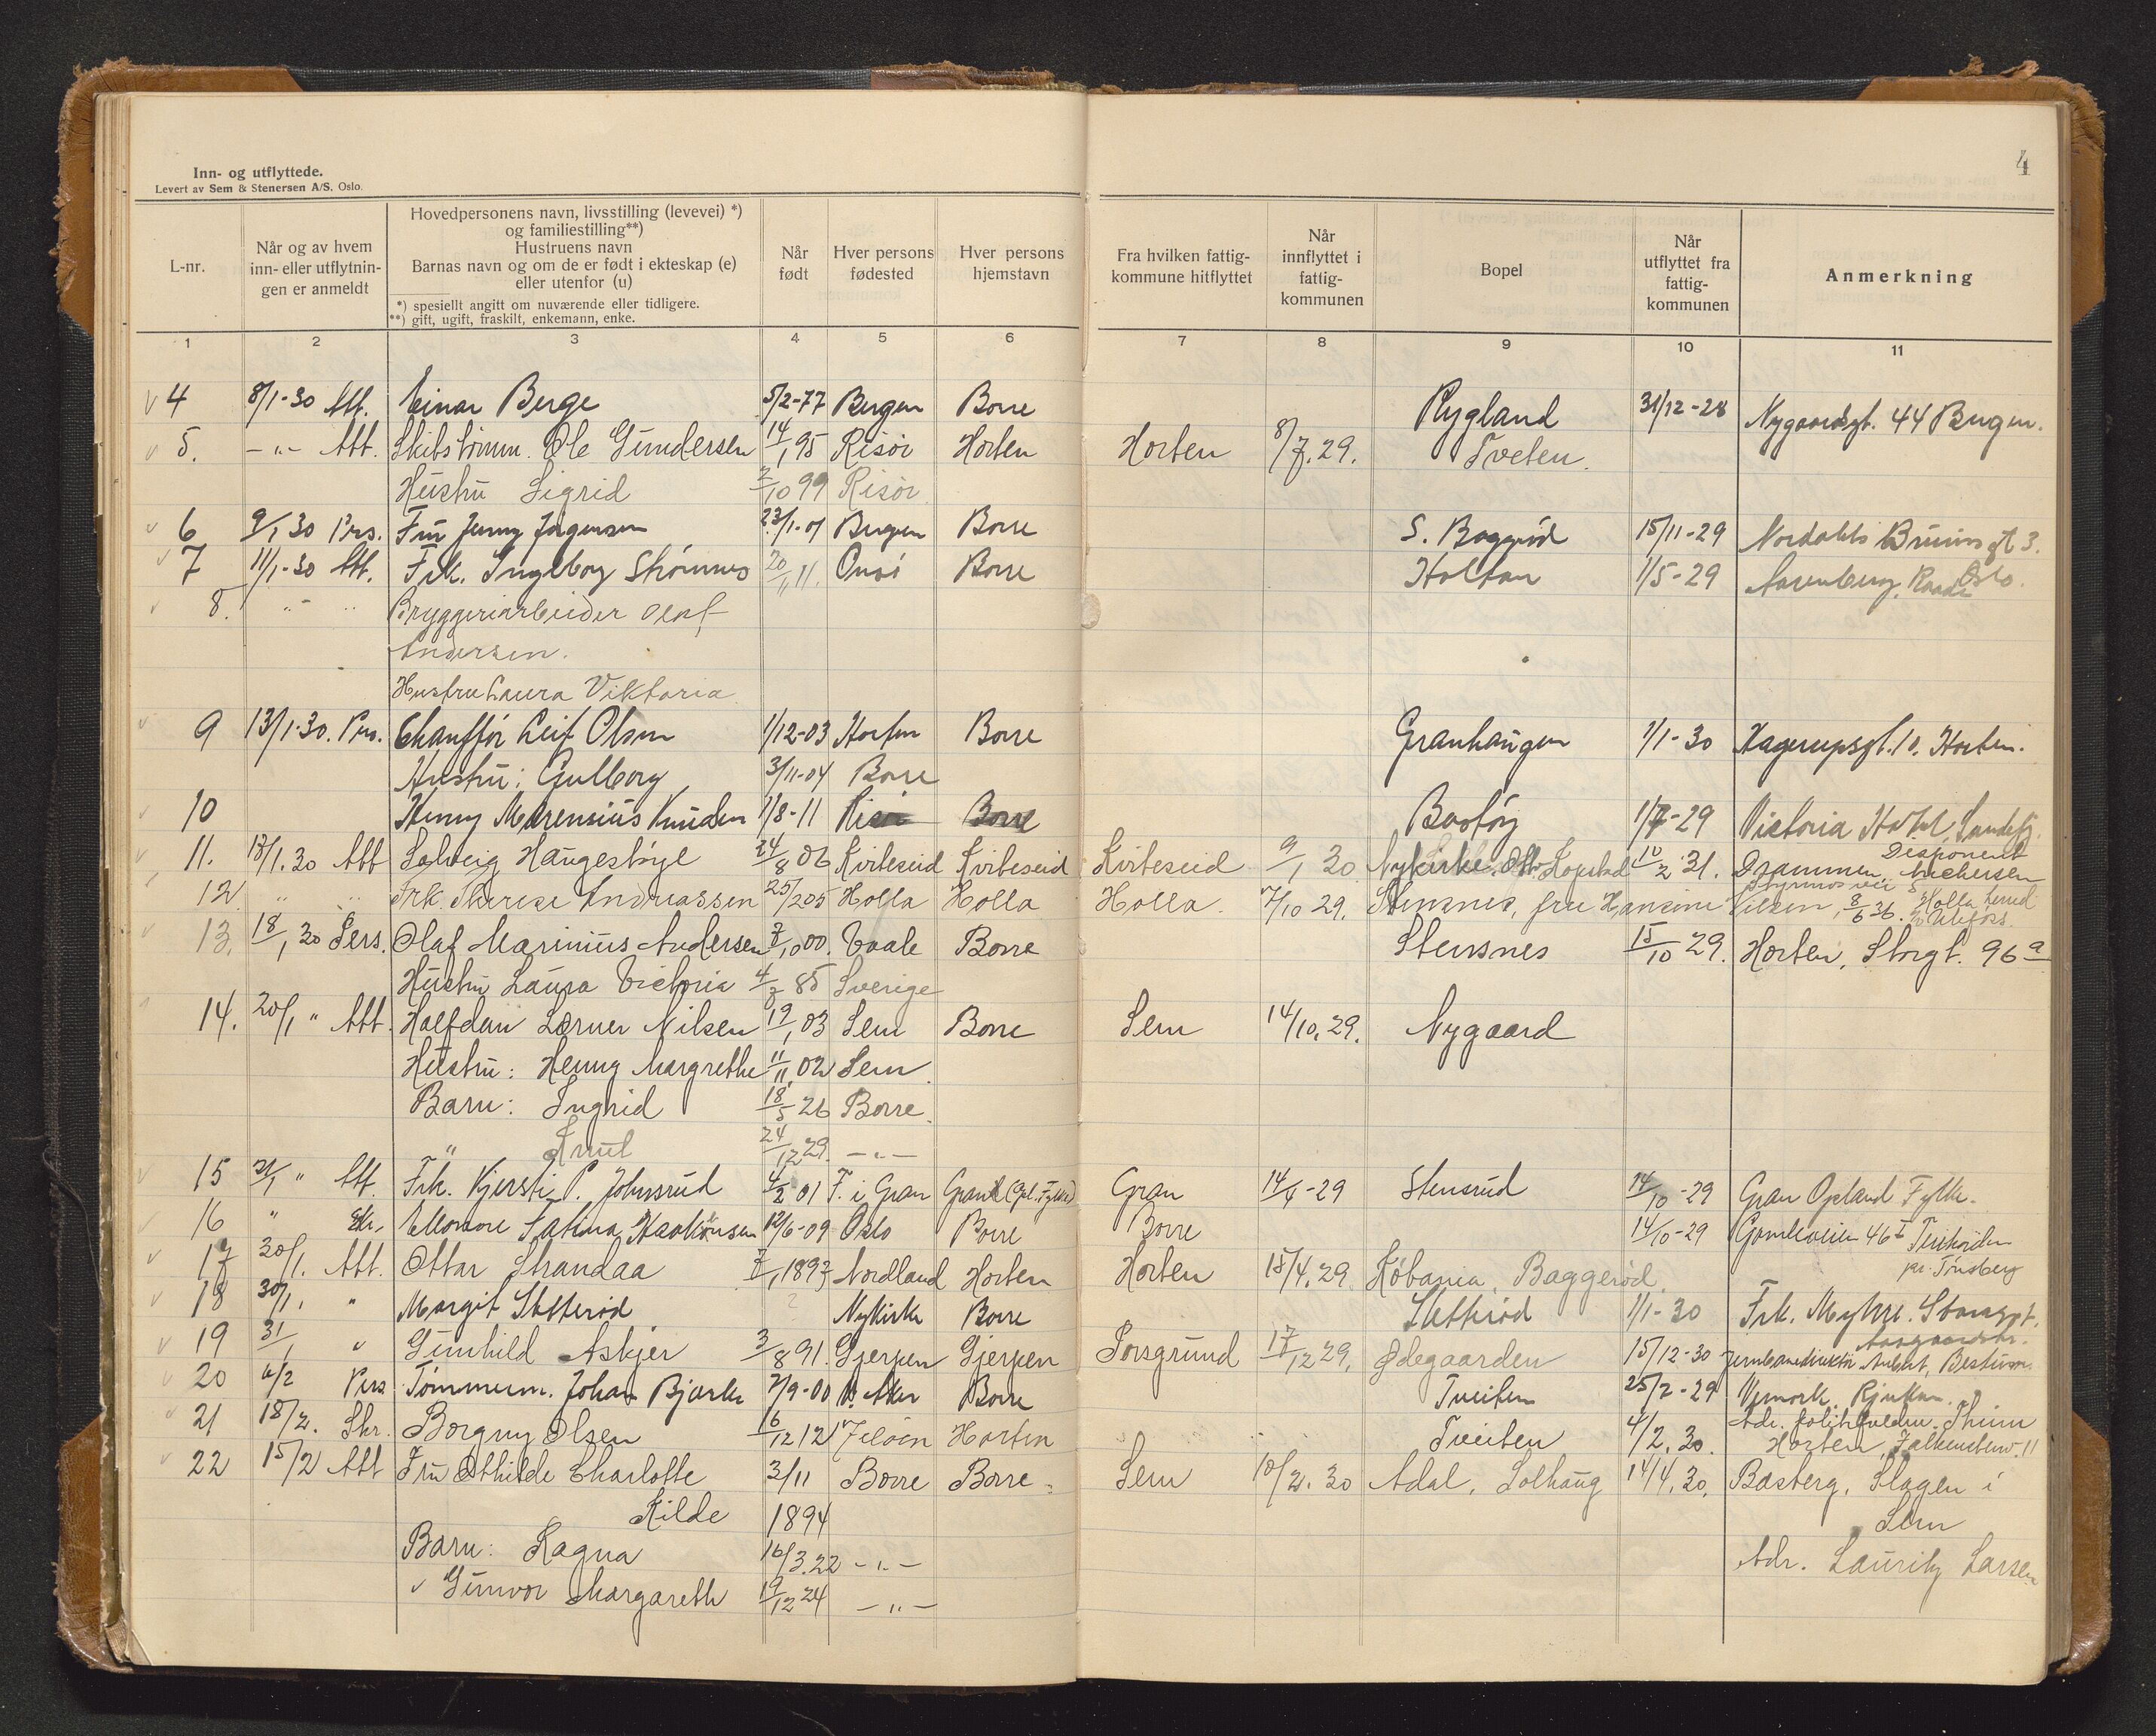 4
Inn- og utflyttede.
Levert av Sem & Stenersen A/S. Oslo.
L-nr.
Når og av hvem inn- eller utflytnin-gen er anmeldt
Hovedpersonens navn, livsstilling (levevei) *)
og familiestilling**)
Hustruens navn
Barnas navn og om de er født i ekteskap (e)
eller utenfor (u)
*) spesiellt angitt om nuværende eller tidligere.
**) gift, ugift, fraskilt, enkemann, enke.
Når født
Hver persons fødested
Hver persons hjemstavn
Fra hvilken fattig-kommune hitflyttet
Når innflyttet i fattig-kommunen
Bopel
Når utflyttet fra fattig-kommunen
Anmerkning
1 2 3 4 5 6 7 8 9 10 11
4 8/1-30 Att. Einar Berge 5/2-77 Bergen Borre Rygland 31/12-28 Nygaardsgt. 44 Bergen.
5. -"- Att. Skibstømm. Ole Gundersen 14/1 95 Risör Horten Horten 8/7.29. Tveten.
Hustru Sigrid 2/10 99 Risör
6 9/1 30 Prs. Fru Jenny Jørgensen 23/1-01 Bergen Borre S. Baggeröd 15/11-29 Nordahls Bruunsgt 3. Oslo.
7 11/1-30 Att. Frk. Ingeborg Strömnes 20/11 11. Onsö Borre Holtan 1/5-29 Raade
8. "- " Bryggeriarbeider Olaf
Andersen.
Hustru Laura Viktoria
9 13/1-30. Prs. Chaufför Leif Olsen 1/12-03 Horten Borre Granhaugen 1/1-30 Hagerupsgt. 10. Horten.
Hustru: Gulborg 3/11-04 Borre
10 Henny Marensius Knudsen 1/8-11 Borre Bastöy 1/7-29 Victoria Hotel, Sandefj.
11. 13/1.30 Att Solveig Haugestøyl 24/8 06 Kviteseid Kviteseid Kviteseid 9/1 30 Nykirke. Kopstad 10/2 31. Drammen, Disponent
12 " " Frk. Therese Andreassen 25/2 05 Holla Holla Holla. 7/10 29. Stensnes, fru Hansine Nilsen, 8/6 36. Holla herred Ulefoss.
13. 18/1 30 Pers. Olaf Marinius Andersen 7/10 00. Vaale Borre Stensnes 15/10 29. Horten, Storgt. 96 a
Hustru Laura Victoria 4/8 85 Sverige
14. 20/1 " Att. Halfdan Lorner Nilsen 19/1 03 Sem Borre Sem 14/10.29. Nygaard
Hustru: Henny Margrethe 11/11 02 Sem
Barn: Ingrid 18/5 26 Borre.
" Knut 24/12 29. -"-
15 21/1 " Att. Frk. Kjersti P. Johnsrud 4/2-01 F. i Gran Gran (Opl. Fylke) Gran 14/4-29 Stensrud 14/10-29 Gran Opland Fylke.
16 " Skr. Ellonore Fatima Haakonsen 12/6-09 Oslo Borre Borre 14/10-29 Gamleveien 46 I
pr. Tönsberg
17 30/1. Att. Ottar Strandaa 7/1 1893 Nordland Horten Horten 15/4.29. Köbama, Baggeröd
18 30/1. " Margit Sletteröd ? Nykirke Borre Sletteröd 1/1-30 Frk. Myhre.
19 31/1 " Gunhild Askjer 3/8 91. Gjerpen Gjerpen Porsgrund 17/12 29. Ødegaarden 15/12-30
20 6/2 Pers Tømmerm. Johan Bjarke 7/9-00 V. Aker Borre Tveiten 25/2-29 Vemork, Rjukan.
21 18/2. Skr. Borgny Olsen 6/12 12 Jelöen Horten Tveiten 4/2.30. Adr. Thum
Horten, Falkenstenv. 11
22 15/2 Att Fru Othilde Charlotte 3/11 Borre Borre Sem 10/2.30 Adal, Solhaug 14/4.30. Basberg, Slagen i
Kilde 1894 Sem
Barn: Ragna 16/3.22 -"- Adr. Lauritz Larsen
Gunvor Margareth 19/12 24 -"-